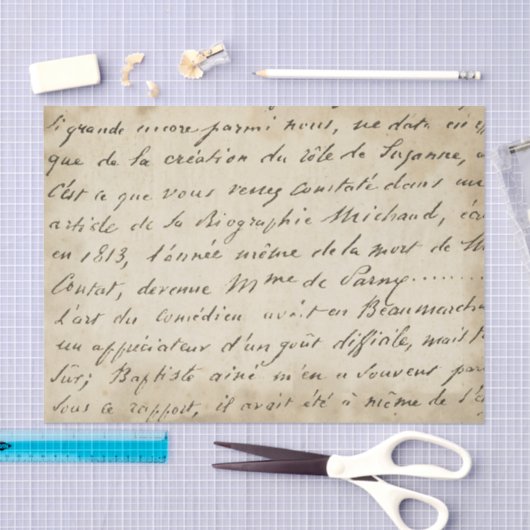 si grande encore parmi nous, ne date en
que de la création du rôle de Suzanne,
C'est ce que vous verrez constaté dans un
article de la Biographie Michaud,
en 1813, l'année même de la mort de
Contat, devenue Mme de Parny.........
L'art du comédien avait en Beaumarch
un appréciateur d'un goût difficile, mais
sûr; Baptiste ainé m'en a souvent
sous ce rapport, il avait été à même de